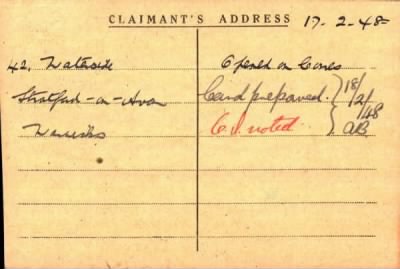 CLAIMANT'S ADDRESS 17-2-48
42, Waterside
Stratford-on-Avon
Warwicks
Opened on Cones
Card prepared.
C.I. noted.
18/2/48
AB